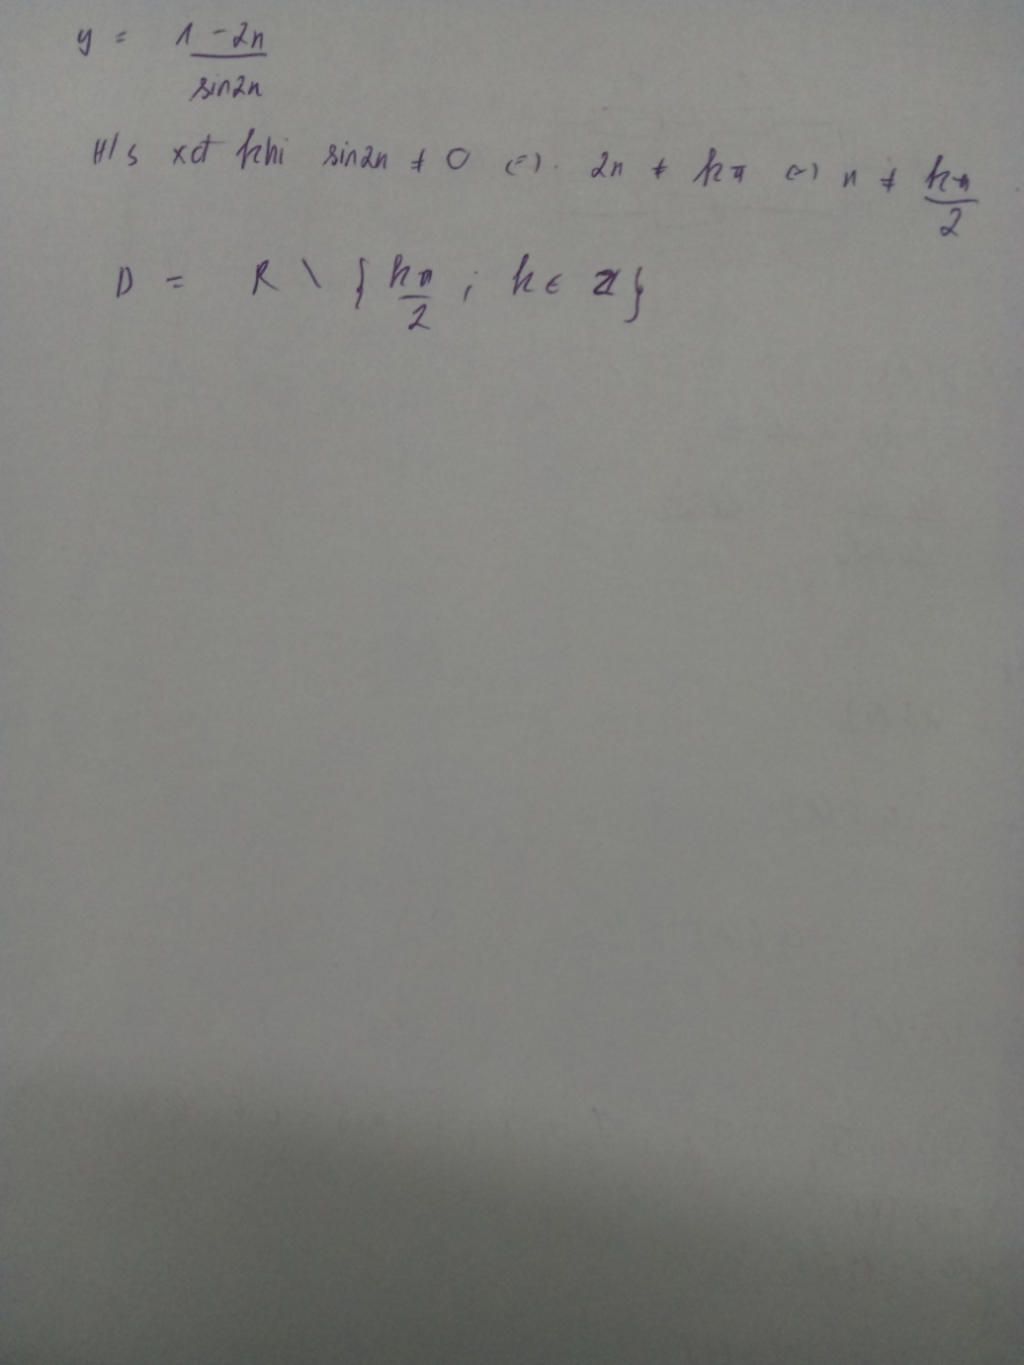 y = 1 - 2x / sin2x
H/s xđ khi sin2x ≠ 0 <=> 2x ≠ kπ <=> x ≠ kπ/2
D = R \ { kπ/2 ; k ∈ Z }